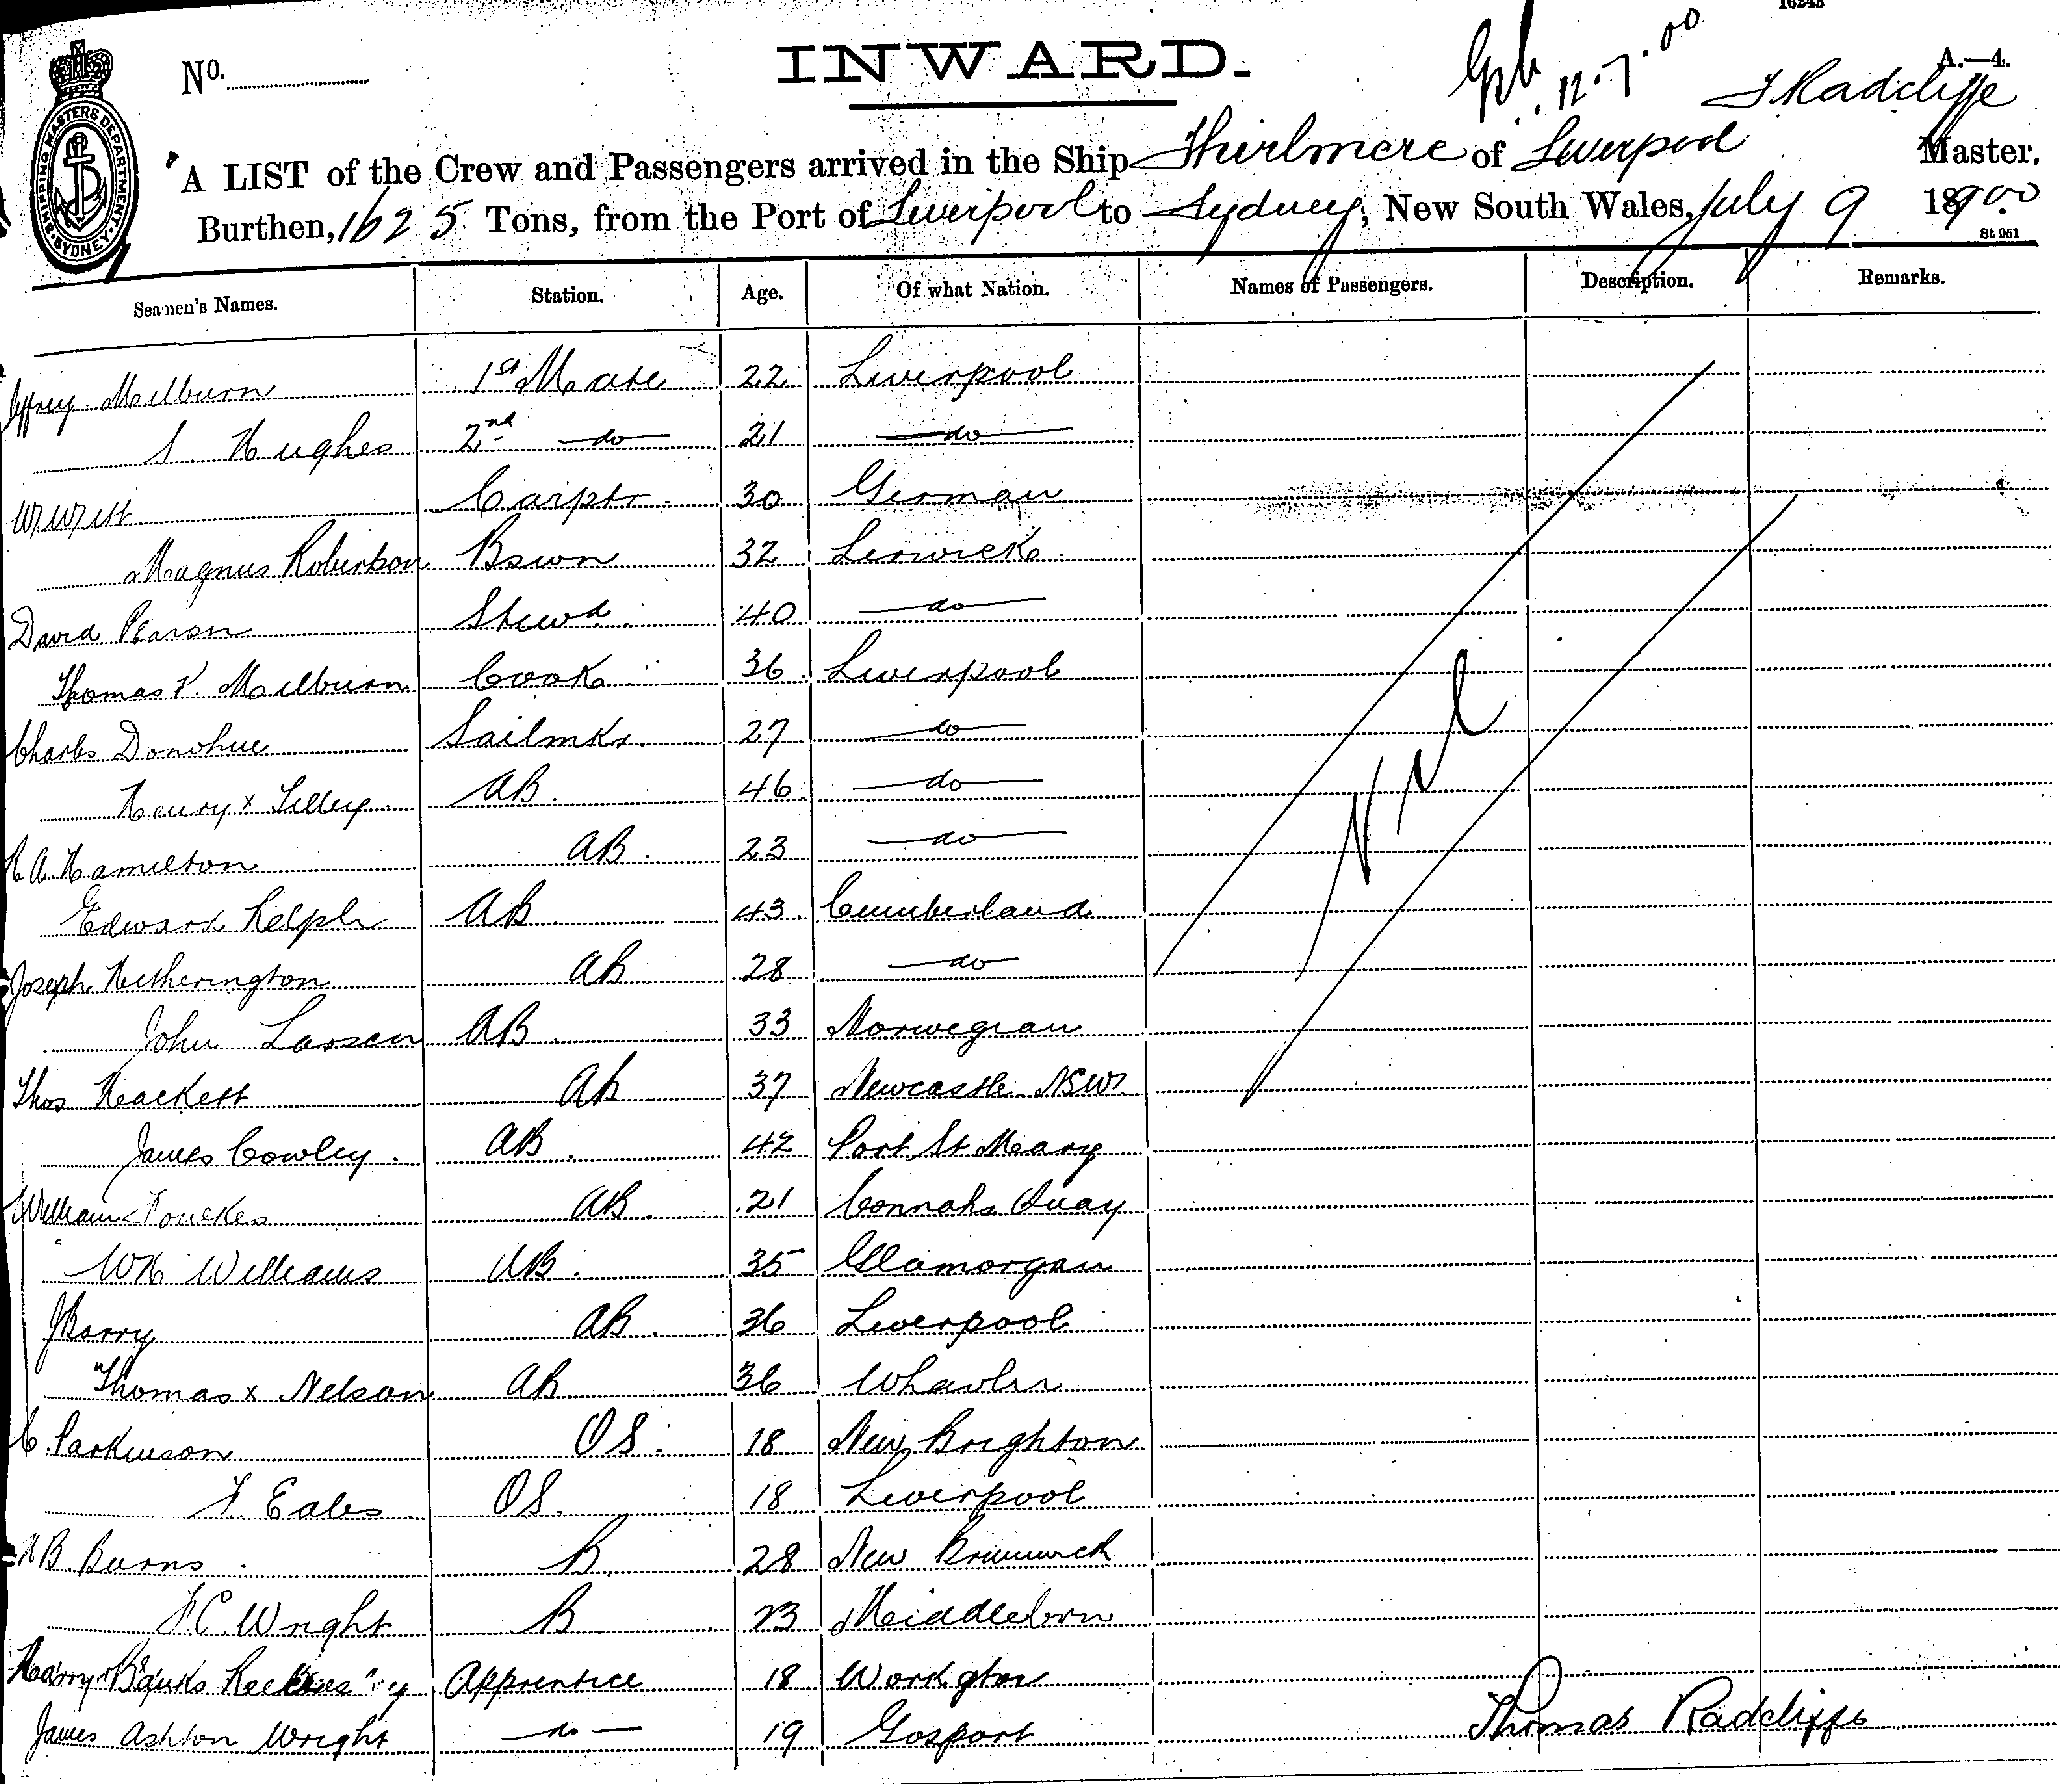 16248
INWARD.
No.
12.7.00
A.—4.
T Radcliffe
A LIST of the Crew and Passengers arrived in the Ship Thirlmere of Liverpool Master.
Burthen, 1625 Tons, from the Port of Liverpool to Sydney, New South Wales, July 9 18900
SHIPPING MASTERS DEPARTMENT SYDNEY
St 961
Seamen's Names. Station. Age. Of what Nation. Names of Passengers. Description. Remarks.
Milburn 1st Mate 22 Liverpool
Hughes 2nd do 21 do
Carptr 30 German
Magnus Robertson Bswn 32 Lerwick
David Pearson Stewd 40 do
Thomas Milburn Cook 36 Liverpool
Charles Donohue Sailmkr 27 do
Henry x Lilley AB. 46 do
Hamilton AB. 23 do
Edward Relph AB 43 Cumberland
Joseph Hetherington AB 28 do
John Larsen AB 33 Norwegian
Thos Hackett AB 37 Newcastle NSW
James Cowley. AB. 42 Port St Mary
William Foulkes AB. 21 Connahs Quay
WH Williams AB. 35 Glamorgan
J Barry AB. 36 Liverpool
Thomas x Nelson AB 36
C. Parkinson OS. 18 New Brighton
Eales OS. 18 Liverpool
Burns B 28 New Brunswick
Wright B 23
Harry Banks Apprentice 18 Workgton
James Ashton Wright do 19 Gosport
Nil
Thomas Radcliffe